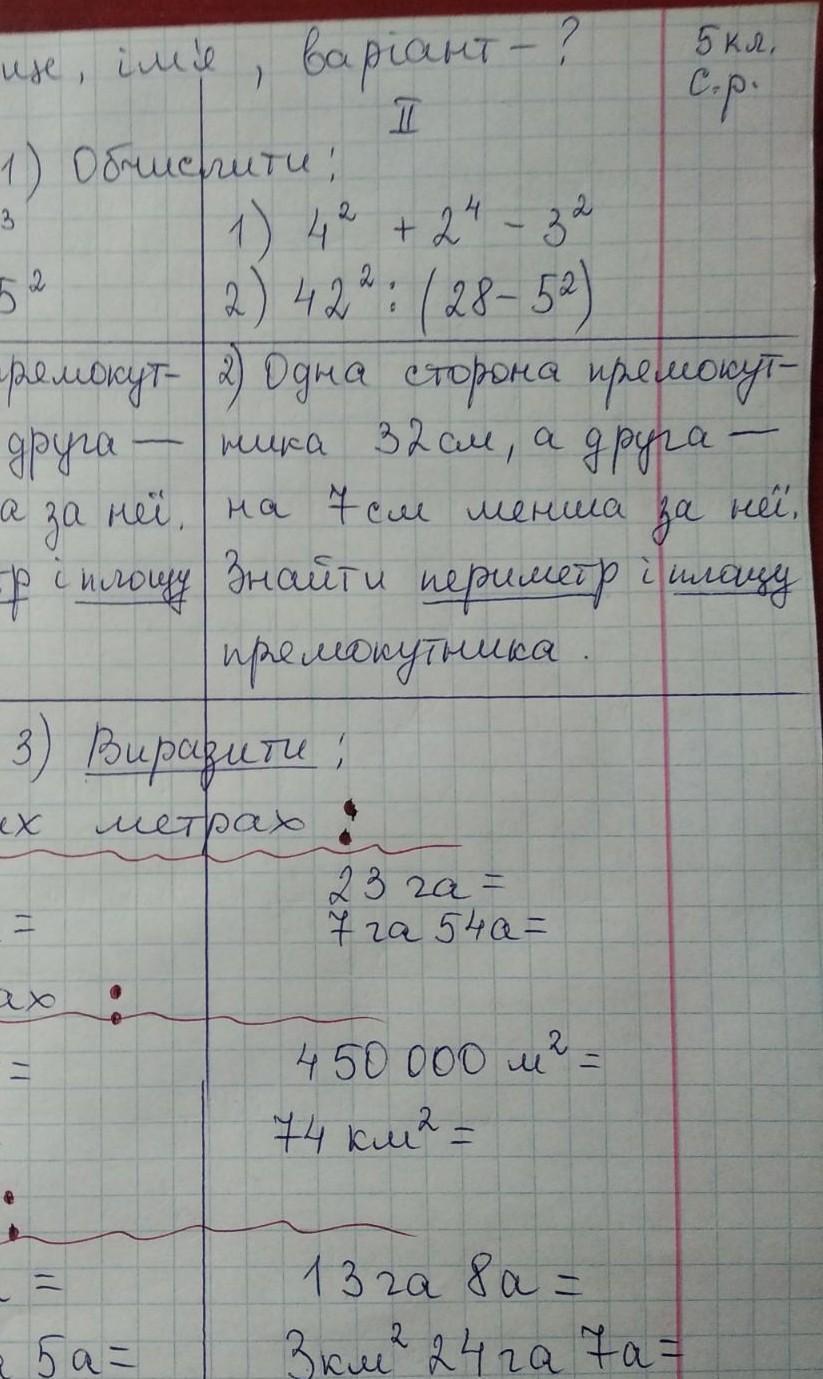 ім'я, варіант - ?
5 кл.
с.р.
II
1) Обчислити:
3
1) 4² + 2⁴ - 3²
5²
2) 42² : (28 - 5²)
ремокут-
2) Одна сторона прямокут-
друга —
ника 32 см, а друга —
а за неї.
на 7 см менша за неї.
р і площу
Знайти периметр і площу
прямокутника.
3) Виразити:
их метрах :
23 га =
=
7 га 54 а =
ах :
450 000 м² =
=
74 км² =
:
13 га 8а =
=
5а =
3 км² 24 га 7а =